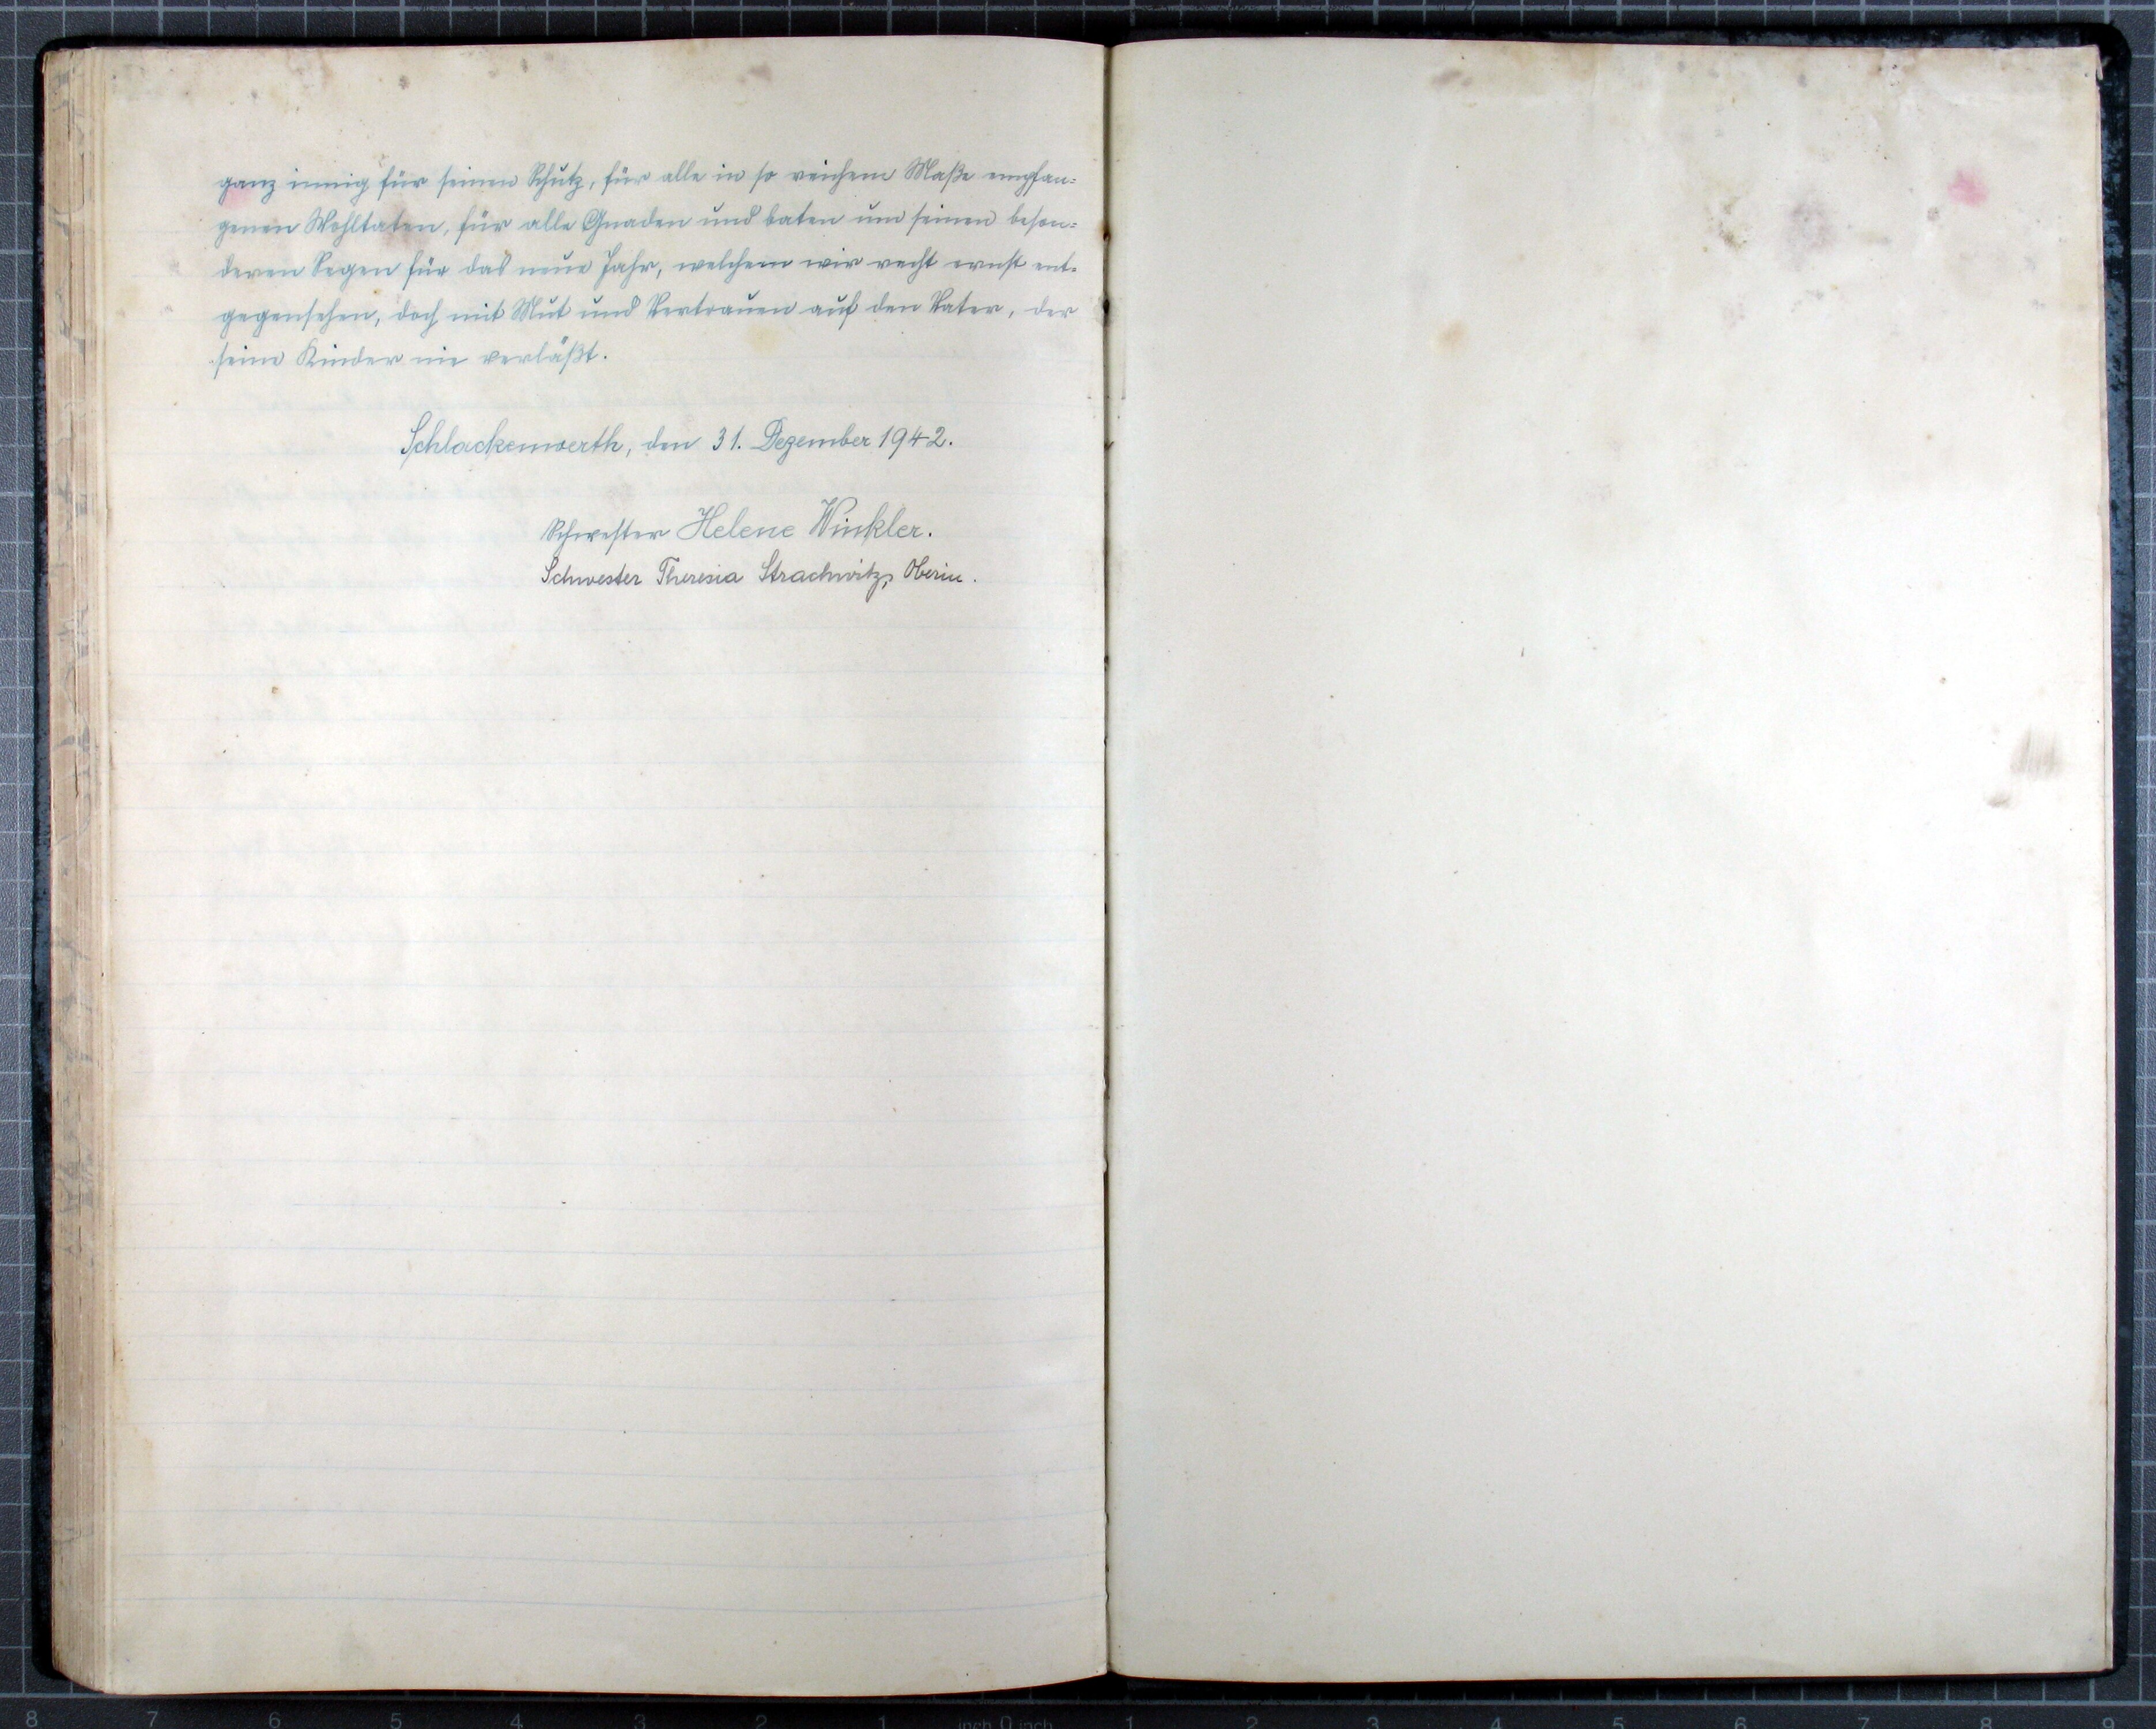 ganz innig für seinen Schutz, für alle in so reichem Maße empfan=
genen Wohltaten, für alle Gnaden und baten um seinen beson=
deren Segen für das neue Jahr, welchem wir recht ernst ent=
gegensehen, doch mit Mut und Vertrauen auf den Vater, der
seine Kinder nie verläßt.
Schlackenwerth, den 31. Dezember 1942.
Schwester Helene Winkler.
Schwester Theresia Strachwitz, Oberin.
8 7 6 5 4 3 2 1 inch 0 inch 1 2 3 4 5 6 7 8 9